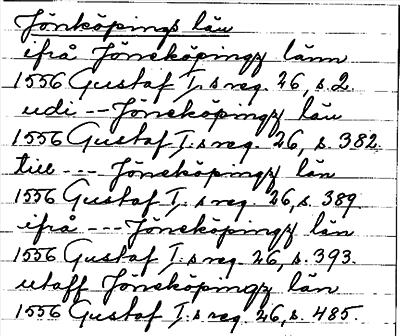 Jönköpings län
ifrå Jöneköpingz länn
1556 Gustaf I:s reg. 26, s. 2.
udi --- Jöneköpingz län
1556 Gustaf I:s reg. 26, s. 382.
till --- Jöneköpingz län
1556 Gustaf I:s reg. 26, s. 389.
ifrå --- Jöneköpingz län
1556 Gustaf I:s reg. 26, s. 393.
utaff Jöneköpingz län
1556 Gustaf I:s reg. 26, s. 485.